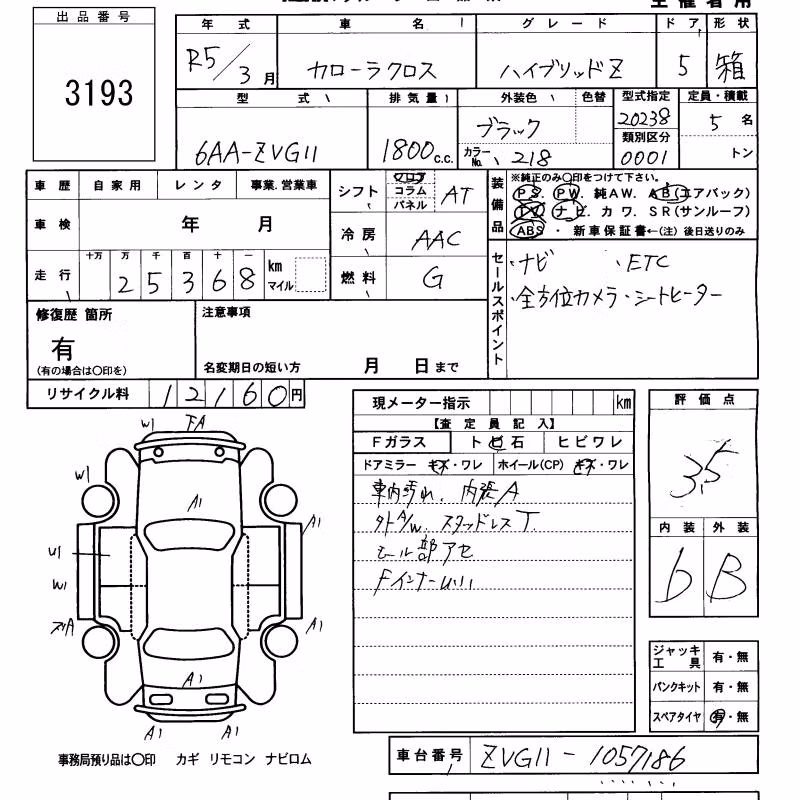 出品番号
3193
年式 車名 グレード ドア 形状
R5/3月 カローラクロス ハイブリッドZ 5 箱
型式 排気量 外装色 色替 型式指定 定員・積載
6AA-ZVG11 1800c.c. ブラック 20238 5名
カラーNo. 218 類別区分 0001 トン
車歴 自家用 レンタ 事業.営業車
シフト フロア コラム パネル AT
装備品
※純正のみ○印をつけて下さい。
PS. PW. 純AW. AB(エアバック)
ナビ. カワ. SR(サンルーフ)
ABS ・ 新車保証書←(注) 後日送りのみ
車検 年 月
冷房 AAC
走行 十万 万 千 百 十 一
25368 km マイル
燃料 G
セールスポイント
・ナビ ・ETC
・全方位カメラ・シートヒーター
修復歴 箇所
有
(有の場合は○印を)
注意事項
名変期日の短い方 月 日まで
リサイクル料 12160円
現メーター指示 km
【査定員記入】
Fガラス トビ石 ヒビワレ
ドアミラー キズ・ワレ ホイール(CP) キズ・ワレ
車内汚れ. 内張A
外A/W. スタッドレスT.
モール部アセ
評価点
3.5
内装 外装
b B
W1 FA
W1
A1
A1
U1
W1
A1
A1
A1 A1
ジャッキ工具 有・無
パンクキット 有・無
スペアタイヤ 有・無
事務局預り品は○印 カギ リモコン ナビロム
車台番号 ZVG11-1057186